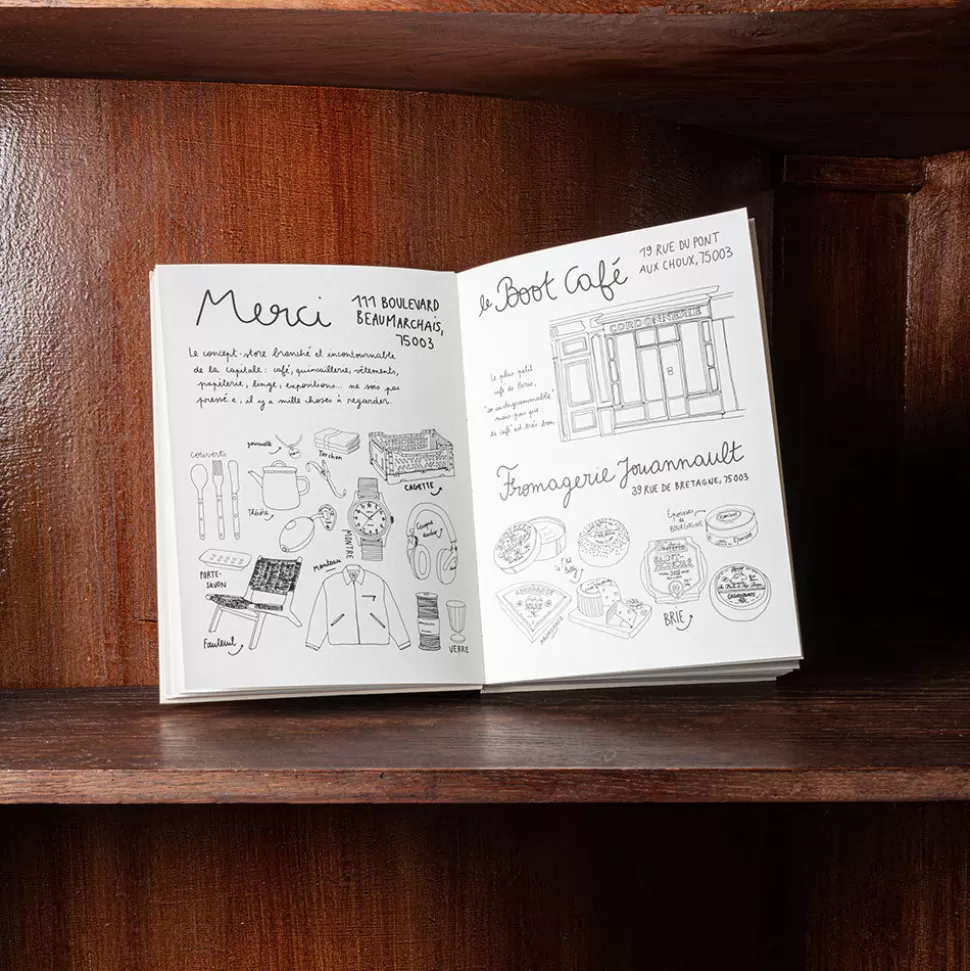 Merci
111 BOULEVARD
BEAUMARCHAIS,
75003
Le concept-store branché et incontournable
de la capitale : café, quincaillerie, vêtements,
papèterie, linge, expositions... ne sois pas
pressé e, il y a mille choses à regarder.
couverts
Torchon
CAGETTE
Théière
MONTRE
Casque
audio
PORTE-
SAVON
Manteau
Fauteuil
VERRE
le Boot Café
19 RUE DU PONT
AUX CHOUX, 75003
CORDONNERIE
Le plus petit
café de Paris,
mais pas que.
le café est très bon.
Fromagerie Jouannault
39 RUE DE BRETAGNE, 75003
Epoisses
de
BOURGOGNE
BRIE